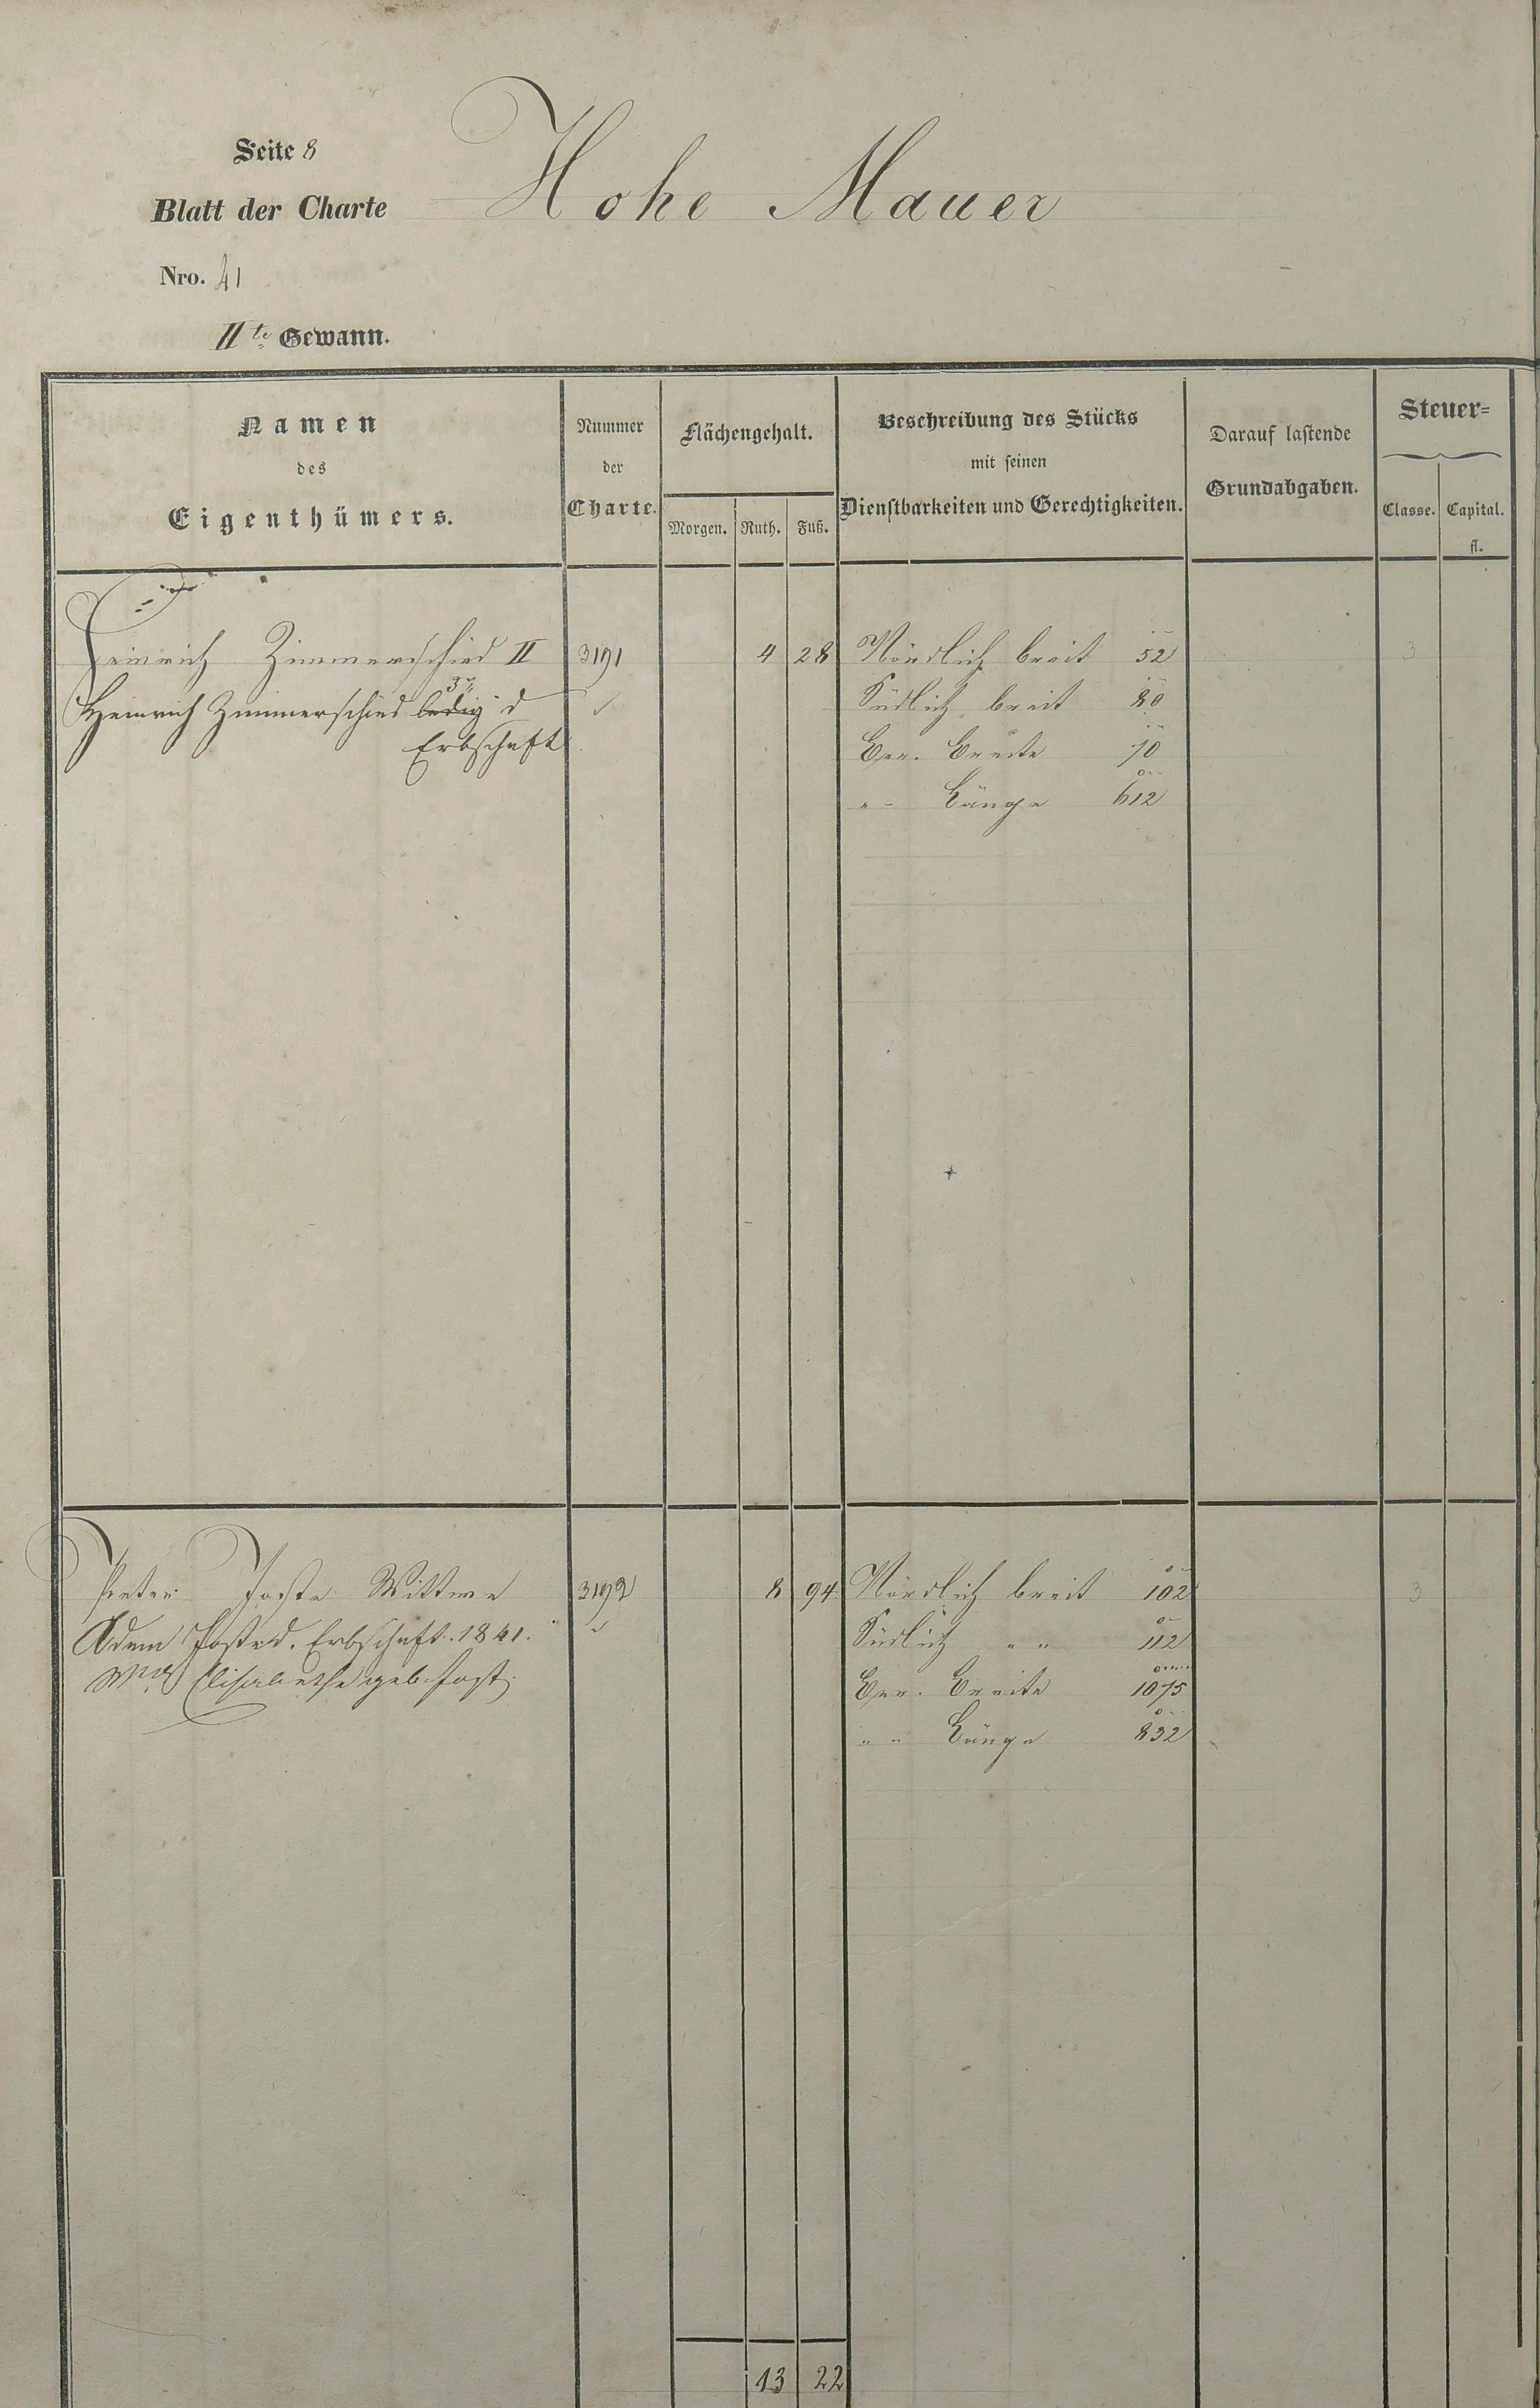 Seite 8
Blatt der Charte Hohe Mauer
Nro. 41
IIte Gewann.
Namen
des
Eigenthümers.
Nummer
der
Charte.
Flächengehalt.
Morgen. Ruth. Fuß.
Beschreibung des Stücks
mit seinen
Dienstbarkeiten und Gerechtigkeiten.
Darauf lastende
Grundabgaben.
Steuer=
Classe. Capital.
fl.
Heinrich Zimmerschied II 3191 4 28 Nördlich breit 52 3
Heinrich Zimmerschied ledig d ✓ Südlich breit 80
Erbschaft Ger. Breite 70
" - Länge 612
Peter Wittwe 3192 8 94 Nördlich breit 102 3
Adam d. Erbschaft. 1841. Südlich " " 112
Elisabethe geb. Ger. Breite 1075
" " Länge 832
13 22